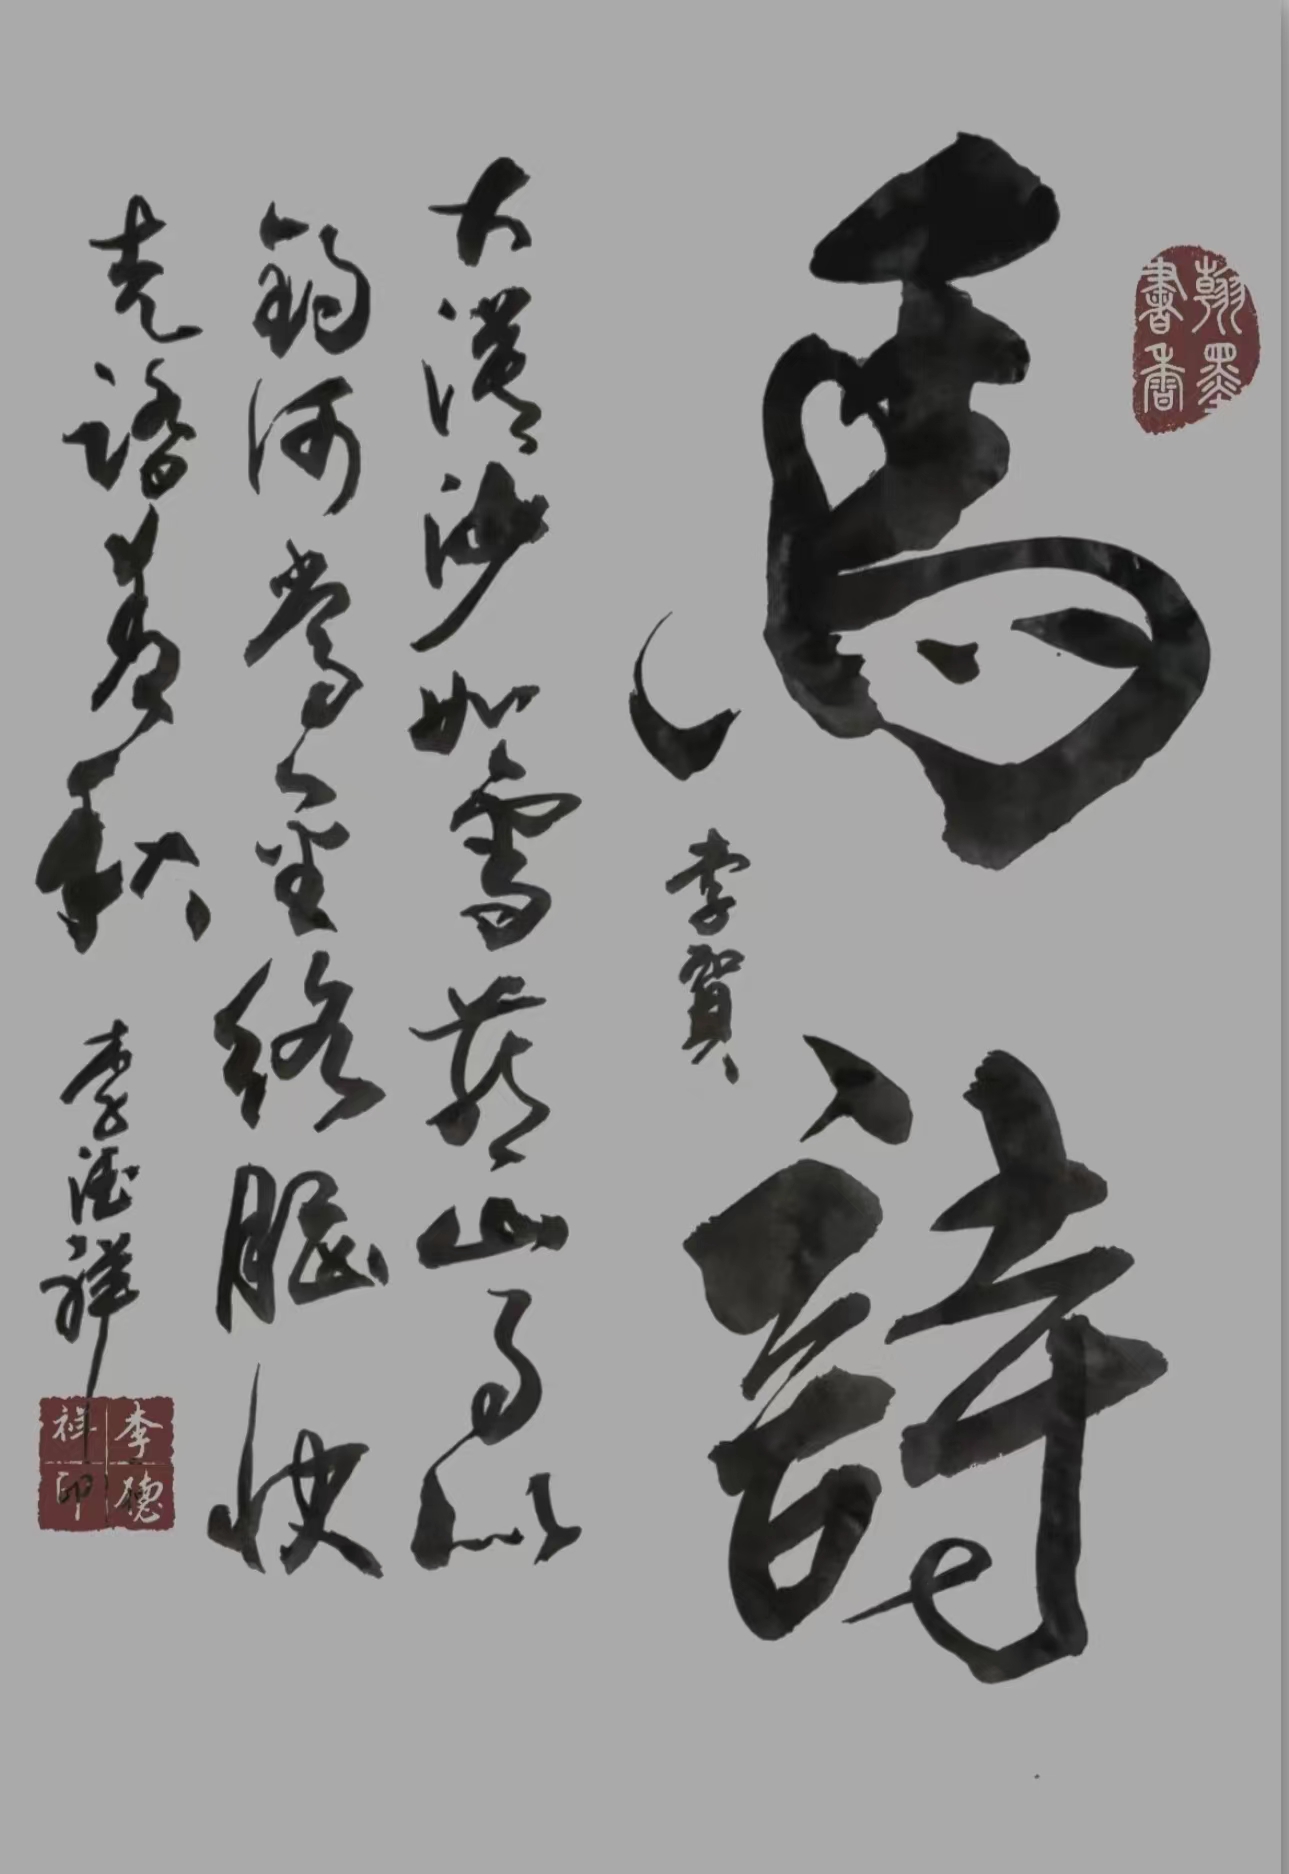 翰墨
書香
馬詩
李賀
大漠沙如雪燕山月似
鈎何當金絡腦快
走踏清秋
李德祥
李德
祥印